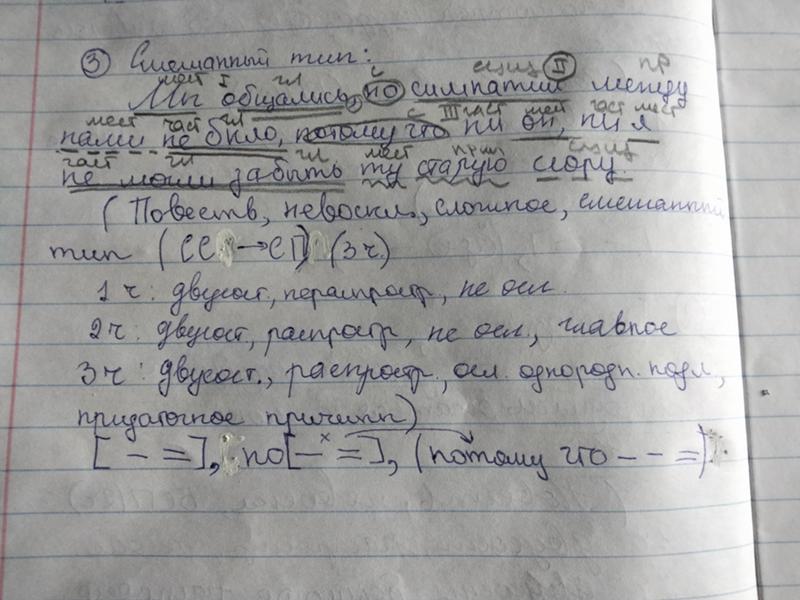 ③ Смешанный тип:
мест I гл с сущ II пр
Мы общались, но симпатии между
мест част гл с III част мест част мест
нами не было, потому что ни он, ни я
част гл гл мест прил сущ
не могли забыть ту старую ссору.
(Повеств, невоскл., сложное, смешанный
тип (СС → СП) (3 ч.)
1 ч: двусост, нераспростр, не осл.
2 ч: двусост, распростр, не осл., главное
3 ч: двусост., распростр., осл. однородн. подл.,
придаточное причины)
[ – = ], но [ – x = ], (потому что – – =).